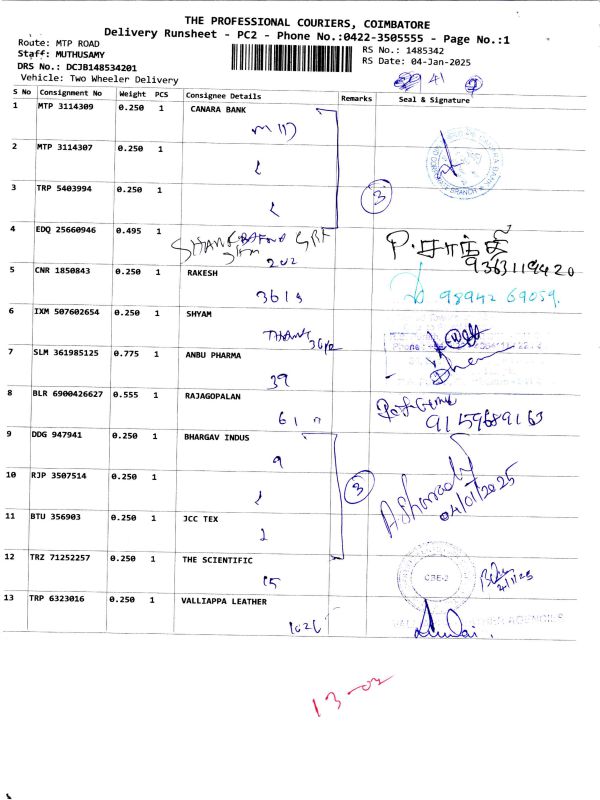 THE PROFESSIONAL COURIERS, COIMBATORE
Delivery Runsheet - PC2 - Phone No.:0422-3505555 - Page No.:1
Route: MTP ROAD
Staff: MUTHUSAMY
DRS No.: DCJB148534201
Vehicle: Two Wheeler Delivery
RS No.: 1485342
RS Date: 04-Jan-2025
41
S No Consignment No Weight PCS Consignee Details Remarks Seal & Signature
1 MTP 3114309 0.250 1 CANARA BANK
2 MTP 3114307 0.250 1
3 TRP 5403994 0.250 1
3
4 EDQ 25660946 0.495 1
202
P. சாந்தி
9363119420
5 CNR 1850843 0.250 1 RAKESH
3613
98942 69059.
6 IXM 507602654 0.250 1 SHYAM
7 SLM 361985125 0.775 1 ANBU PHARMA
39
8 BLR 6900426627 0.555 1 RAJAGOPALAN
61
9159689163
9 DDG 947941 0.250 1 BHARGAV INDUS
9
10 RJP 3507514 0.250 1
3
04/01/2025
11 BTU 356903 0.250 1 JCC TEX
12 TRZ 71252257 0.250 1 THE SCIENTIFIC
15
CBE-2
4/1/25
13 TRP 6323016 0.250 1 VALLIAPPA LEATHER
1026
13-02